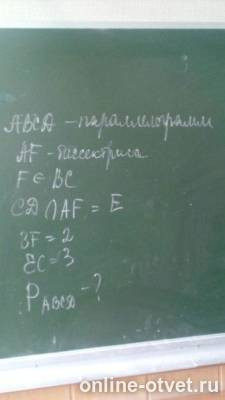 ABCD - параллелограмм
AF - биссектриса
F ∈ BC
CD ∩ AF = E
BF = 2
EC = 3
P ABCD - ?
online-otvet.ru